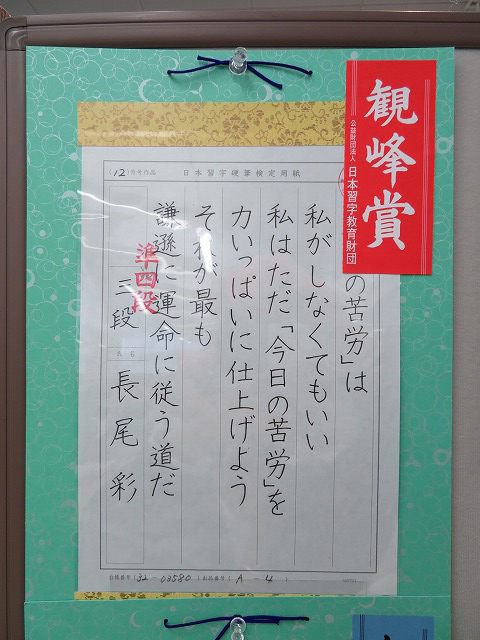 観峰賞
公益財団法人 日本習字教育財団
(12)月号作品 日本習字硬筆検定用紙
の苦労」は
私がしなくてもいい
私はただ「今日の苦労」を
力いっぱいに仕上げよう
それが最も
謙遜に運命に従う道だ
準四段
三段
氏名
長尾彩
(32-03580) (A-4)